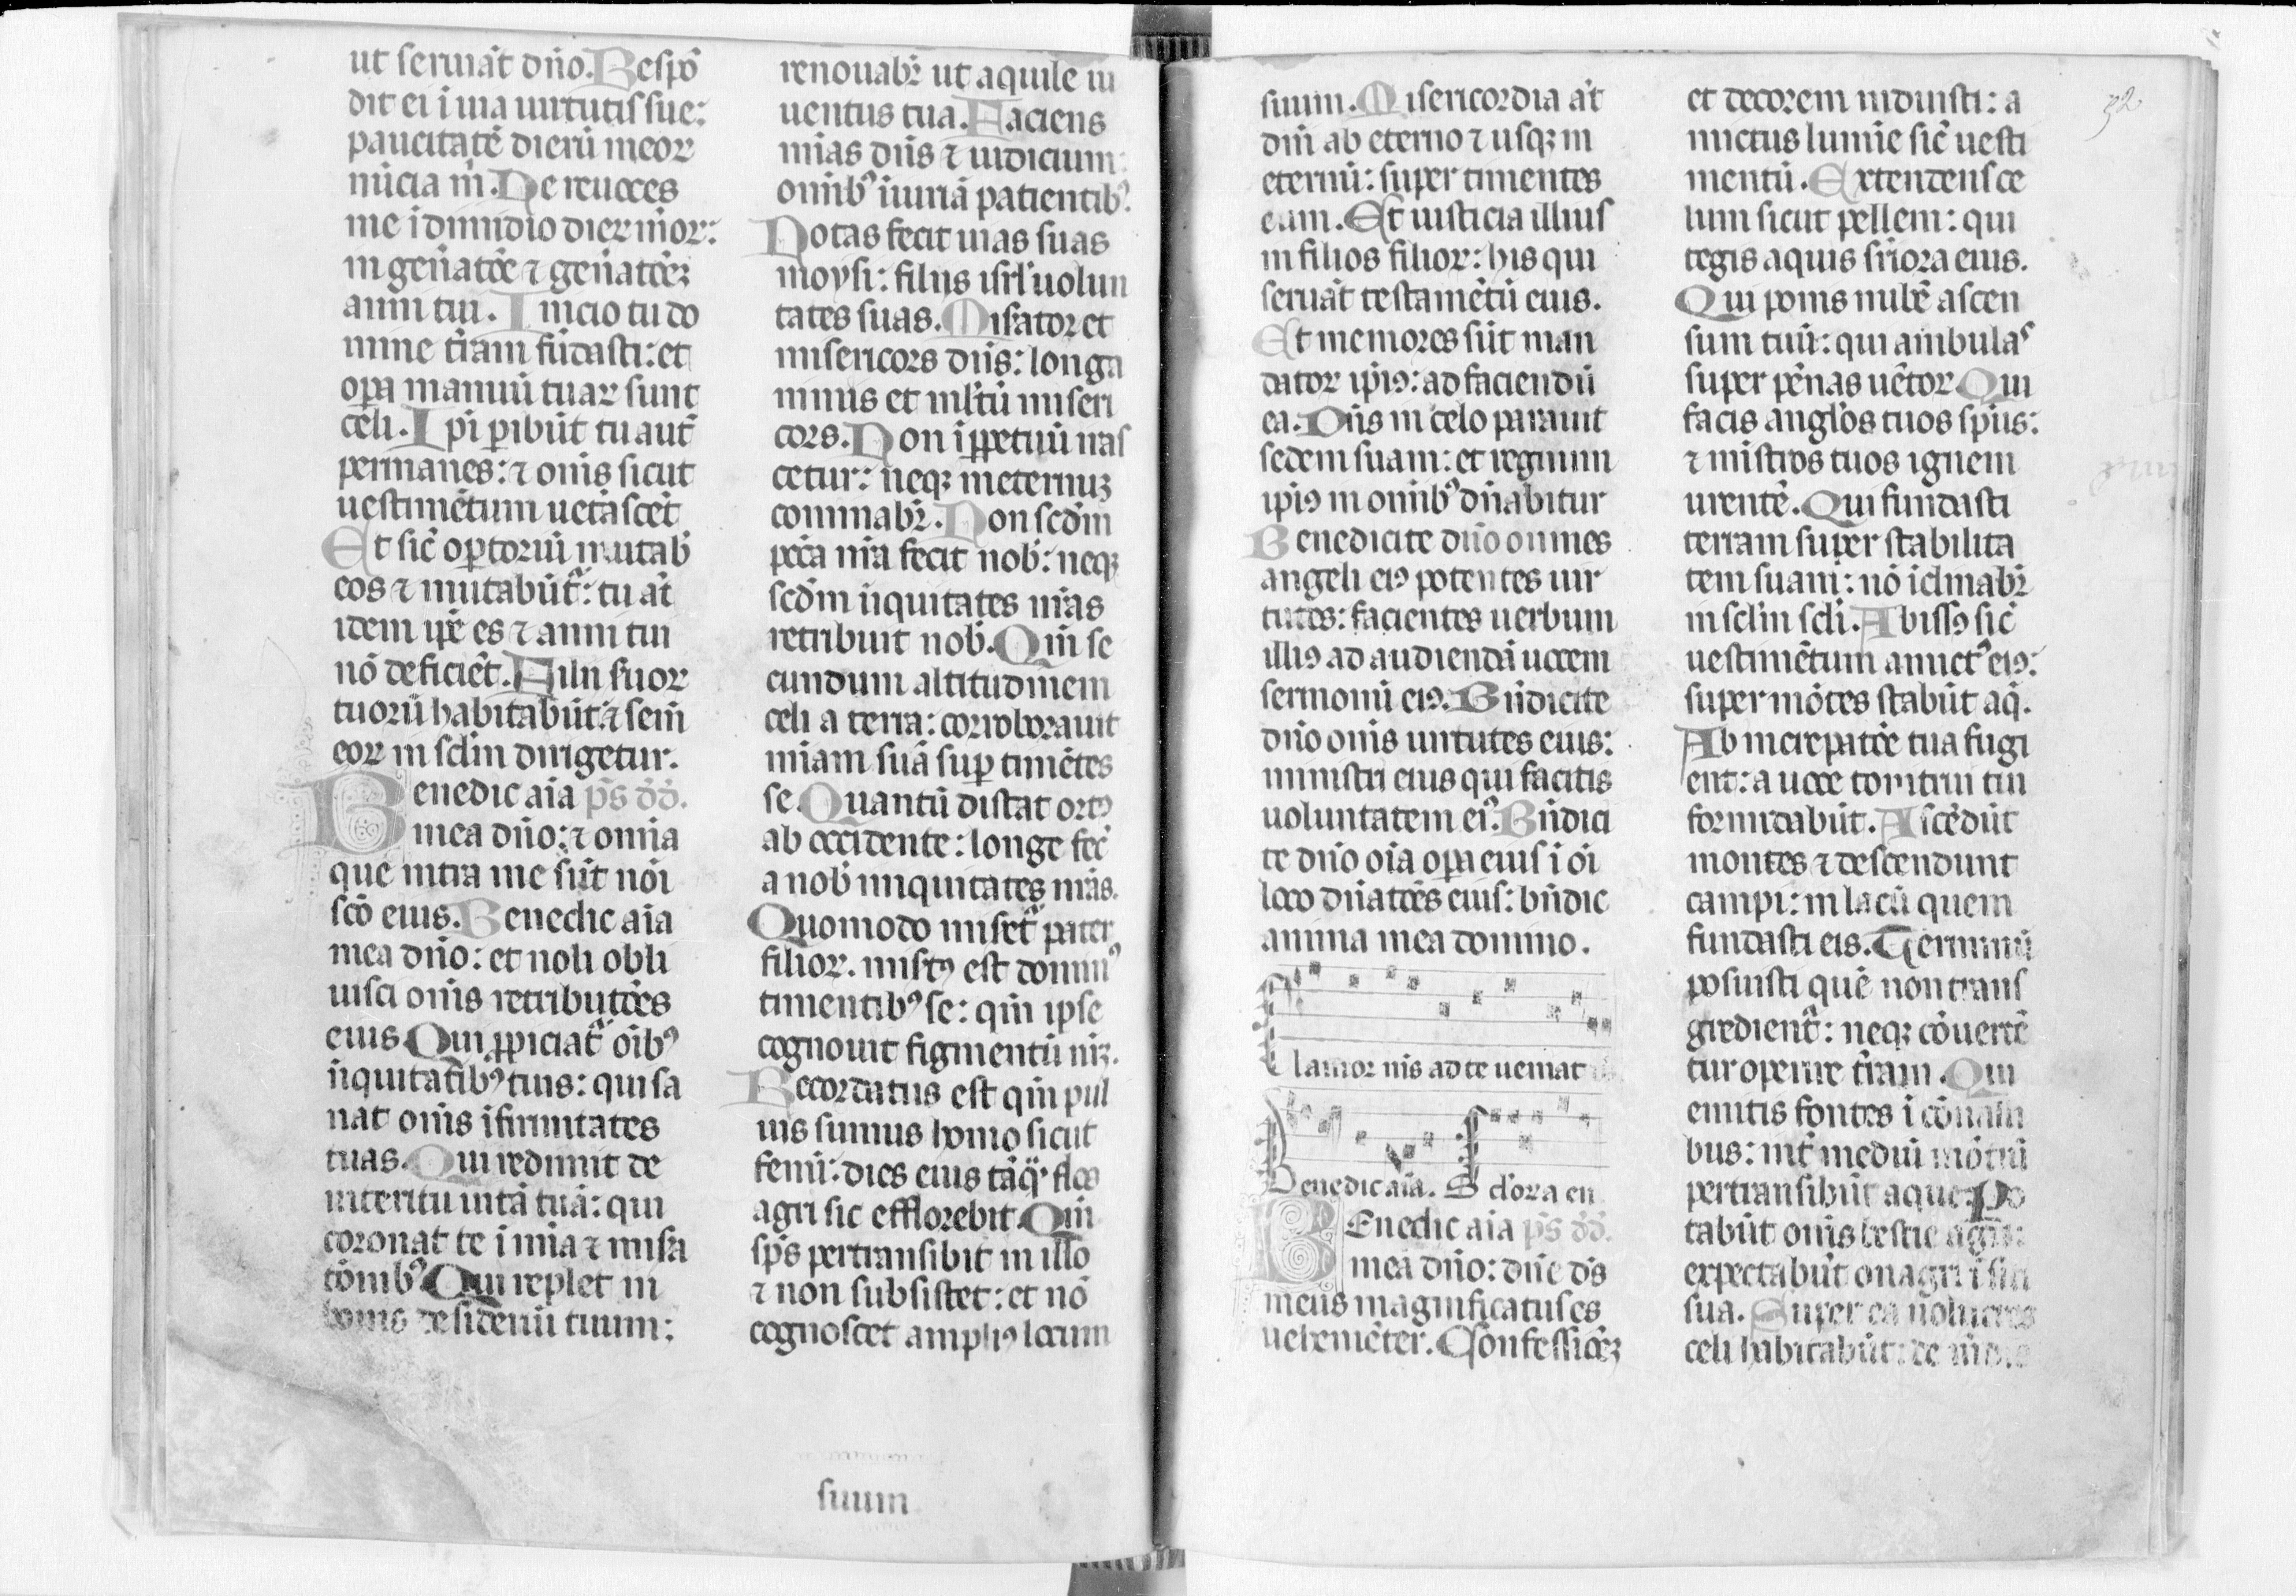 ut seruiāt dño. Respō
dit ei ī uia uirtutis sue:
paucitatē dierū meor
nūcia m̄. Ne reuoces
me ī dimidio dier meor:
in gen̄atōe ⁊ gen̄atōeꝫ
anni tui. Inicio tu do
mine t̄ram fūdasti: et
oꝑa manuū tuar sunt
celi. Ipi ꝑibūt tu aut̄
permanes: ⁊ om̄s sicut
uestimētum uetāscēt
Et sic̄ oꝑtoriū mutab̄
eos ⁊ mutabūt᷑: tu at̄
idem ip̄e es ⁊ anni tui
nō deficiēt. Filii suor
tuorū habitabūt: ⁊ sem̄
eor in sclm̄ dirigetur.
Benedic aīa p̄s dd̄.
mea dño: ⁊ omīa
que intra me sūt nōī
scō eius. Benedic aīa
mea dño: et noli obli
uisci om̄s retributōes
eius Qui ꝓpiciat᷑ oīb⁹
iiquitatib⁹ tuis: qui sa
nat om̄s īfirmitates
tuas. Qui redimit de
interitu uitā tuā: qui
coronat te ī mīa ⁊ misa
tōnib⁹ Qui replet in
bonis desideriū tuum:
renouabr̄ ut aquile iu
uentus tua. Faciens
mīas dn̄s ⁊ iudicium:
omīb⁹ iuriā patientib⁹.
Notas fecit uias suas
moysi: filiis isrl' uolun
tates suas. Misator et
misericors dn̄s: longa
nimis et ml'tū miseri
cors. Non ī ꝑpetuū iras
cetur: neqꝫ in eternuꝫ
comīabr̄. Non scd̄m
pc̄ca nr̄a fecit nob̄: neqꝫ
scd̄m iiquitates nr̄as
retribuit nob̄. Qm̄ se
cundum altitudinem
celi a terra: corroborauit
mīam suā suꝑ timētes
se. Quantū distat ort⁹
ab occidente: longe fec̄
a nob̄ iniquitates nr̄as.
Quomodo miset᷑ pater
filior. misert⁹ est domin⁹
timentib⁹ se: qm̄ ipse
cognouit figmentū nr̄ꝫ.
Recordatus est qm̄ pul
uis sumus homo sicut
fenū: dies eius tāq̄ flos
agri sic efflorebit Qm̄
sp̄s pertransibit in illo
⁊ non subsistet: et nō
cognoscet ampli⁹ locum
suum
32
suum. Misericordia āt
dn̄i ab eterno ⁊ usqꝫ in
eternū: super timentes
eum. Et iusticia illius
in filios filior: his qui
seruāt testamētū eius.
Et memores sūt man
dator ip̄i⁹: ad faciendū
ea. Dn̄s in celo parauit
sedem suam: et regnum
ipi⁹ in omīb⁹ dn̄abitur
Benedicite dño omnes
angeli ei⁹ potentes uir
tutes: facientes uerbum
illi⁹ ad audiendā uocem
sermonū ei⁹. Bn̄dicite
dño om̄s uirtutes eius:
ministri eius qui facitis
uoluntatem ei⁹. Bn̄dici
te dño oīa oꝑa eius ī oī
loco dn̄atōis eius: bn̄dic
anima mea domino.
Clamor n̄s ad te ueniat
Benedic aīa. Sclōra en
BEnedic aīa p̄s dd̄.
mea dño: dn̄e ds̄
meus magnificatus es
uehemēter. Cōnfessioēꝫ
et decorem induisti: a
mictus lumīe sic̄ uesti
mentū. Extendens ce
lum sicut pellem: qui
tegis aquis sr̄iora eius.
Qui ponis nubē ascen
sum tuū: qui ambulas
super pēnas uētor Qui
facis angl'os tuos sp̄us:
⁊ mīstros tuos ignem
urentē. Qui fundasti
terram super stabilita
tem suam: nō īclinabr̄
in sclm̄ scl̄i. Abiss⁹ sic̄
uestimētum amict⁹ ei⁹:
super mōtes stabūt aq̄.
Ab increpatōe tua fugi
ent: a uoce tonitrui tui
formidabūt. Ascēdūt
montes ⁊ descendunt
campi: in lacū quem
fundasti eis. Terminū
posuisti quē non trans
gredient᷑: neqꝫ cōuertē
tur operire t̄ram. Qui
emitis fontes ī cōuall
bus: int̄ mediū mōtiū
pertransibūt aque. Po
tabūt om̄s bestie agri:
expectabūt onagri ī siti
sua. Super ea uolucres
celi habitabūt: de medio